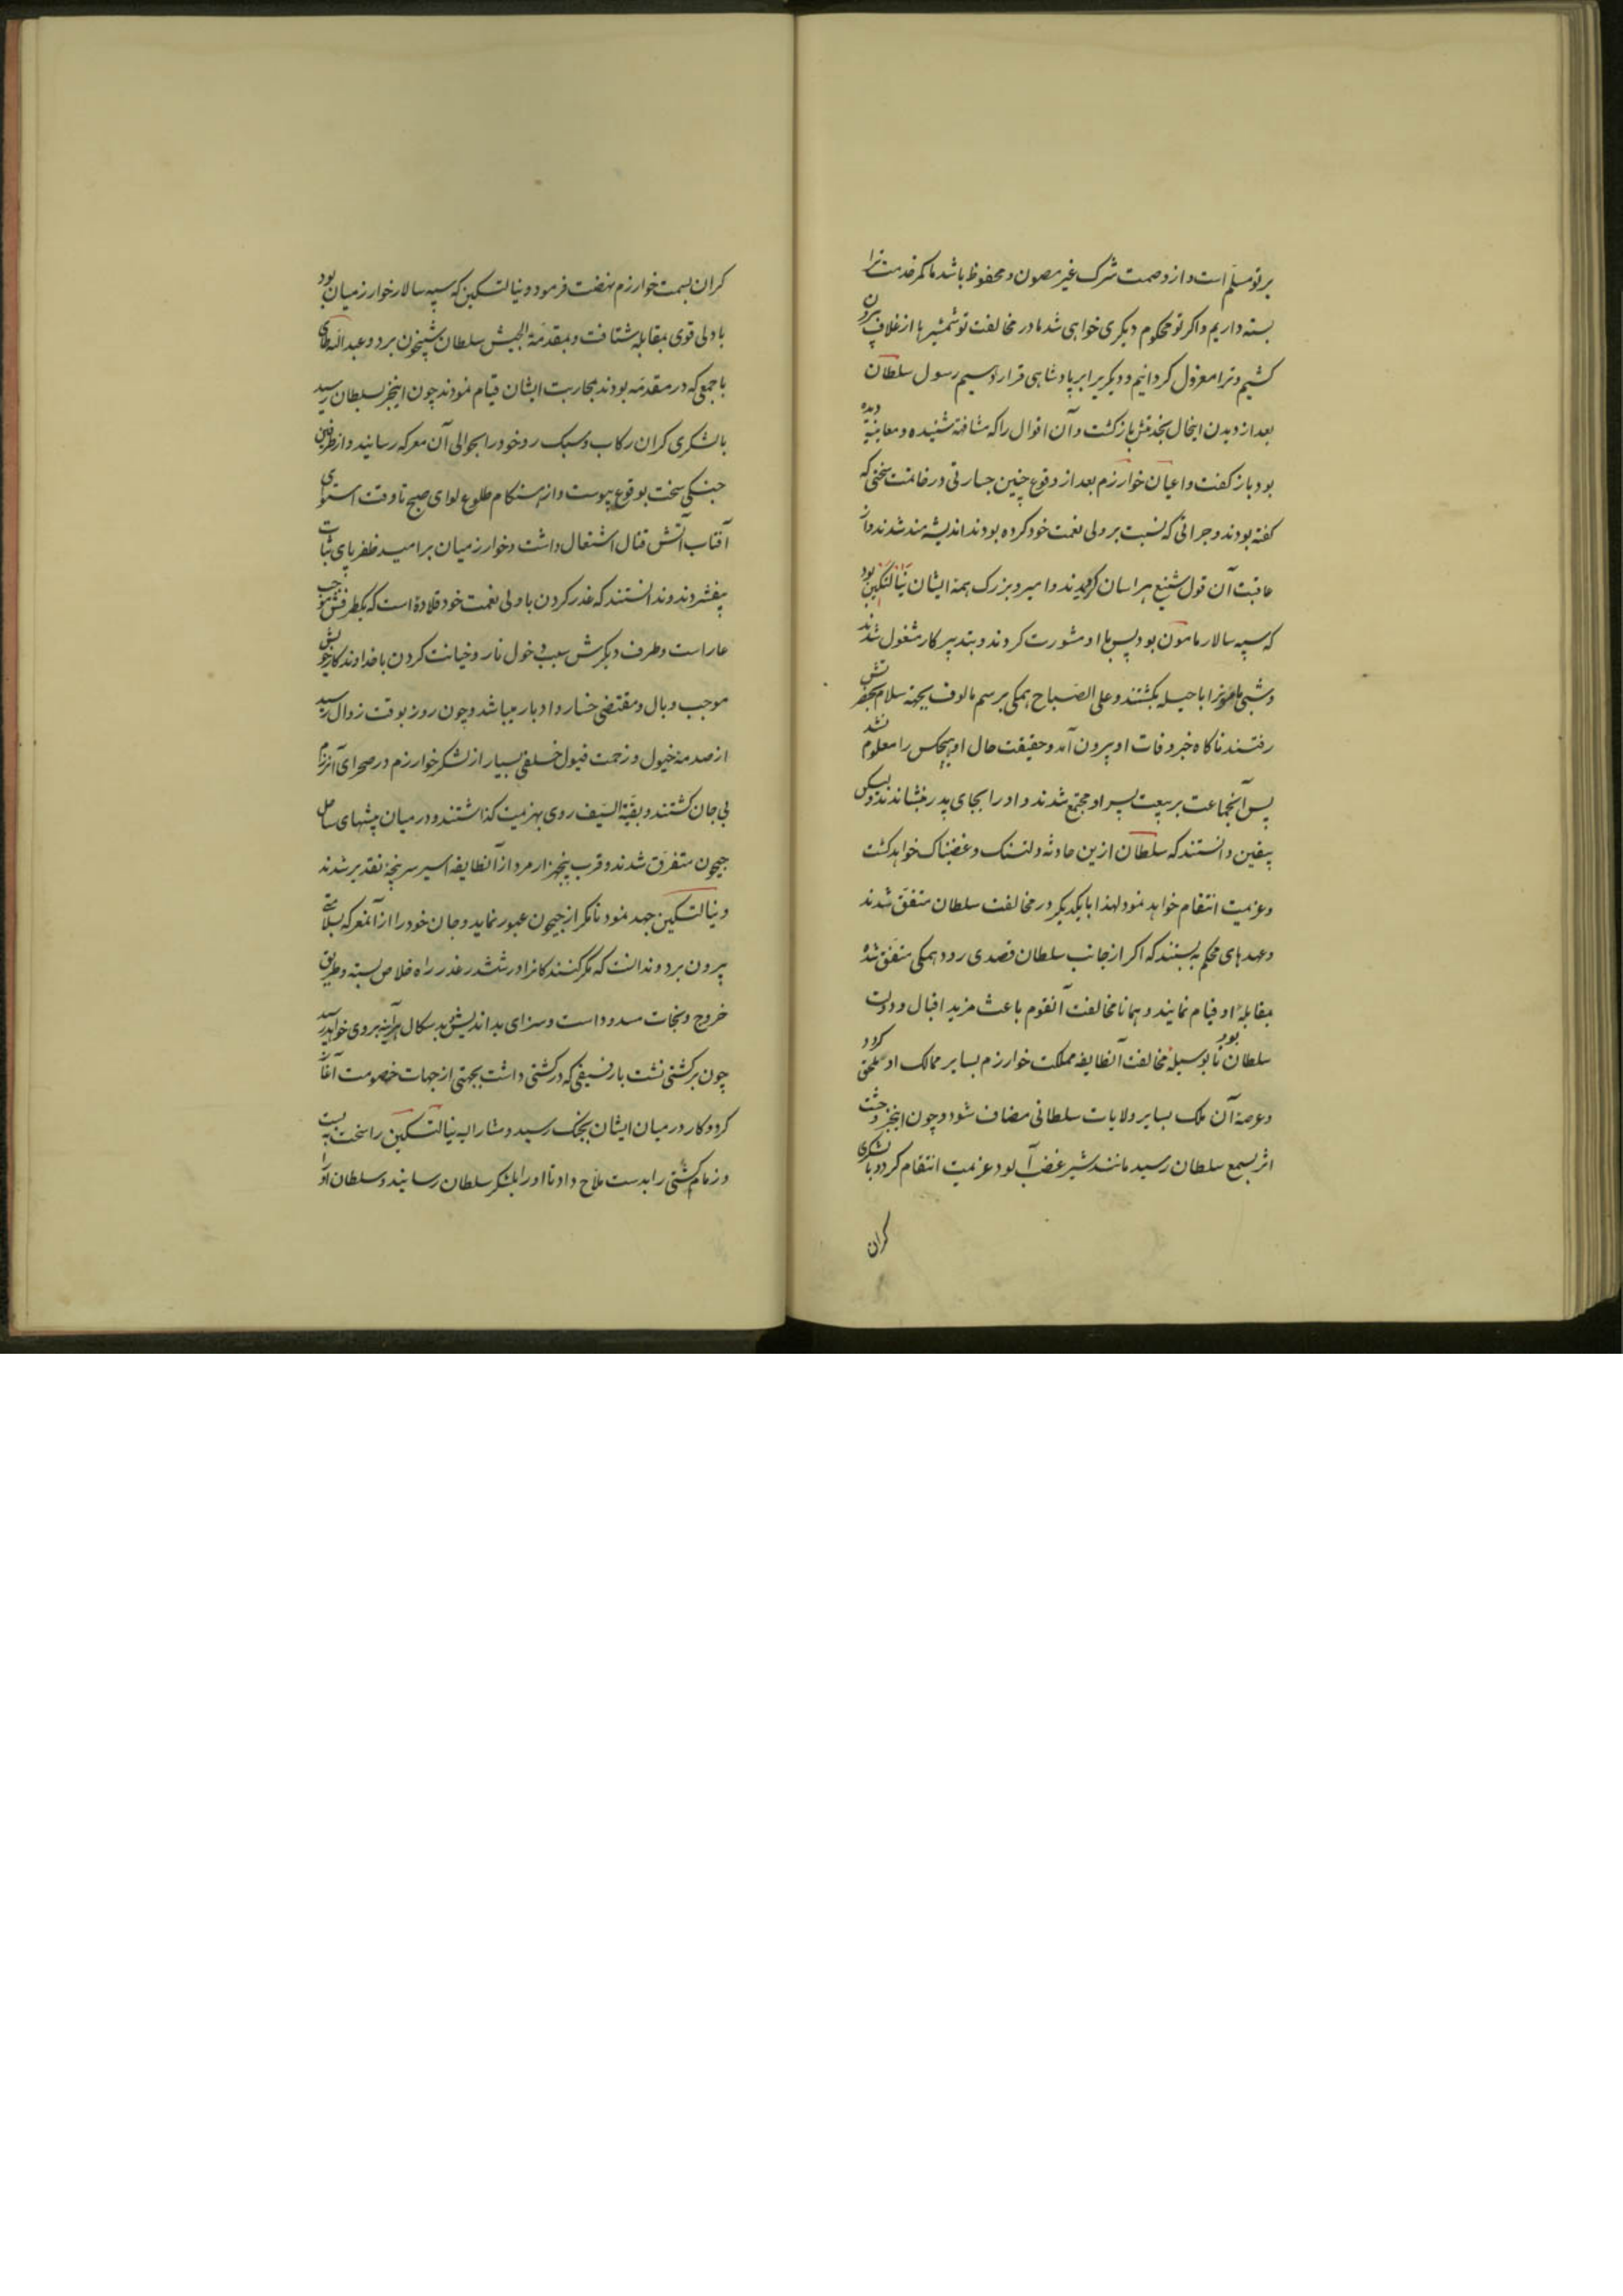 بر تو مسلم است و از وصمت شرک غیر مصون و محفوظ باشد ما کمر خدمت ترا
بسته داریم و اکر تو محکوم دیکری خواهی شد ما در مخالفت تو شمشیرها از غلاف بیرون
کشیم و ترا معزول کردانیم و دیکریرا بر پادشاهی قرار دهیم رسول سلطان
بعد از دیدن اینحال بخدمتش بازکشت و آن اقوال را که مشافهة شنیده و معاینه دیده
بود باز کفت و اعیان خوارزم بعد از وقوع چنین جسارتی و رفامت سخنی که
کفته بودند و جراتی که نسبت بر ولی نعمت خود کرده بودند اندیشه مند شدند و از
عاقبت آن قول شنیع هراسان کردیدند و امیر و بزرک همه ایشان نیالتکین بود
که سپه سالار مامون بود پس با او مشورت کردند و بتدبیر کار مشغول شدند
و شبی مامونرا با حیله بکشتند و علی الصباح همکی برسم مالوف بجهة سلام بحضرتش
رفتند ناکاه خبر وفات او بیرون آمد و حقیقت حال او بهیچکس را معلوم نشد
پس آنجماعت بر بیعت پسر او مجتمع شدند و او را بجای پدر بنشاندند و لیکن
بیقین دانستند که سلطان ازین حادثه دلتنک و غضبناک خواهد کشت
و عزیمت انتقام خواهد نمود لهذا با یکدیکر در مخالفت سلطان متفق شدند
و عهدهای محکم به بستند که اکر از جانب سلطان قصدی رود همکی متفق شده
بمقابلهٔ او قیام نمایند و همانا مخالفت آنقوم باعث مزید اقبال و دولت
سلطان بود تا بوسیلهٔ مخالفت آنطایفه مملکت خوارزم بسایر ممالک او ملحق کردد
و عرصهٔ آن ملک بسایر ولایات سلطانی مضاف شود و چون اینخبر وحشت
اثر بسمع سلطان رسید مانند شیر غضب آلود عزیمت انتقام کرد و با لشکری
کران
کران بسمت خوارزم نهضت فرمود و نیالتکین که سپه سالار خوارزمیان بود
با دلی قوی بمقابله شتافت و بمقدمة الجیش سلطان شبیخون برد و عبدالله طای
با جمعی که در مقدمه بودند بمحاربت ایشان قیام نمودند چون اینخبر بسلطان رسید
با لشکری کران رکاب و سبک رو خود را بحوالی آن معرکه رسانید و از طرفین
جنکی سخت بوقوع پیوست و از هنکام طلوع لوای صبح تا وقت استوای
آفتاب آتش قتال اشتعال داشت و خوارزمیان بر امید ظفر پای ثبات
بیفشردند و ندانستند که غدر کردن با ولی نعمت خود قلادهٔ است که یکطرفش موجب
عار است و طرف دیکرش سبب دخول نار و خیانت کردن با خداوندکار خویش
موجب وبال و مقتضی خسار و ادبار میباشد و چون روز بوقت زوال رسید
از صدمهٔ خیول و زحمت فیول خلقی بسیار از لشکر خوارزم در صحرای آنرزم
بی جان کشتند و بقیة السیف روی بهزیمت کذاشتند و در میان بیشهای ساحل
جیحون متفرق شدند و قرب پنجهزار مرد از آنطایفه اسیر سرپنجهٔ تقدیر شدند
و نیالتکین جهد نمود تا مکر از جیحون عبور نماید و جان خود را از آنمعرکه بسلامتی
بیرون برد و ندانست که مکر کنندکانرا در ششدر غدر راه خلاص بسته و طریق
خروج و نجات مسدود است و سزای بد اندیش بدسکال هرآینه بروی خواهد رسید
چون بر کشتی نشت با رفیقی که در کشتی داشت بجهتی از جهات خصومت آغاز
کرد و کار در میان ایشان بجنک رسید و مشار الیه نیالتکین را سخت به بست
و زمام کشتی را بدست ملاح داد تا او را بلشکر سلطان رسانید و سلطان او را